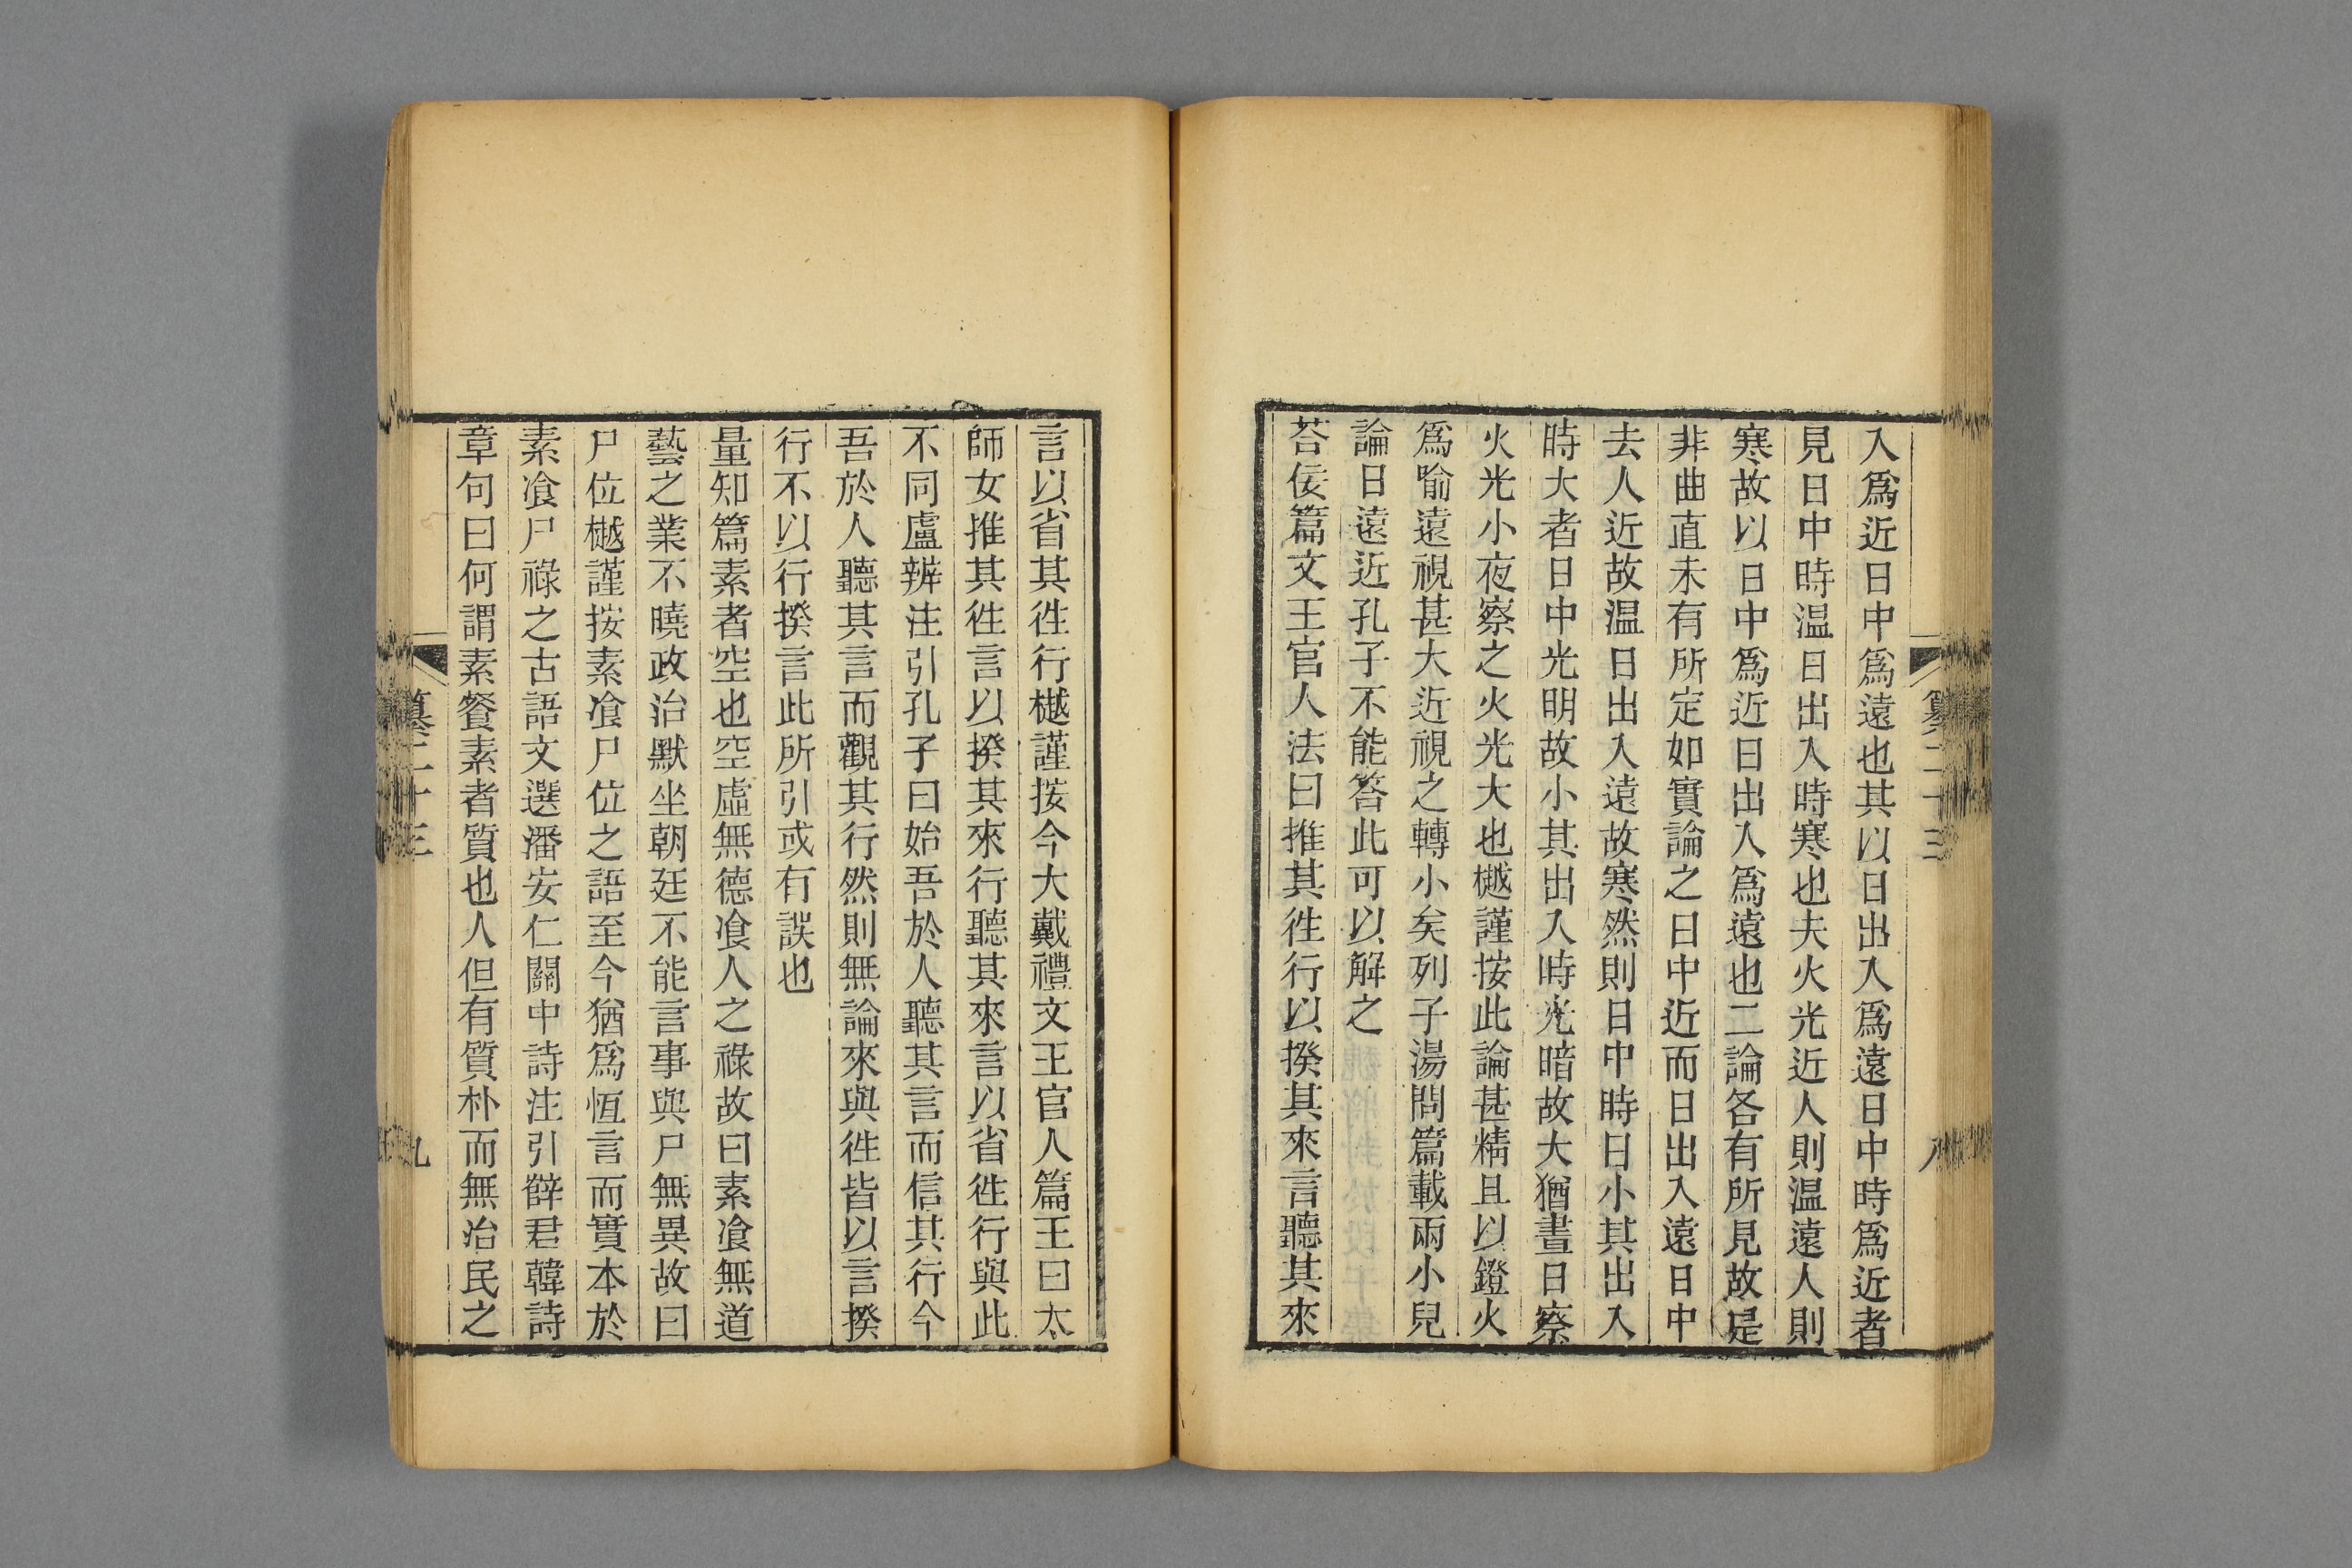 入爲近日中爲遠也其以日出入爲遠日中時爲近者
見日中時温日出入時寒也夫火光近人則温遠人則
寒故以日中爲近日出入爲遠也二論各有所見故是
非曲直未有所定如實論之日中近而日出入遠日中
去人近故温日出入遠故寒然則日中時日小其出入
時大者日中光明故小其出入時光暗故大猶晝日察
火光小夜察之火光大也樾謹按此論甚精且以鐙火
爲喻遠視甚大近視之轉小矣列子湯問篇載兩小兒
論日遠近孔子不能答此可以解之
荅佞篇文王官人法曰推其徃行以揆其來言聽其來
纂二十三
八
言以省其徃行樾謹按今大戴禮文王官人篇王曰太
師女推其徃言以揆其來行聽其來言以省徃行與此
不同盧辨注引孔子曰始吾於人聽其言而信其行今
吾於人聽其言而觀其行然則無論來與徃皆以言揆
行不以行揆言此所引或有誤也
量知篇素者空也空虛無德飡人之祿故曰素飡無道
藝之業不曉政治默坐朝廷不能言事與尸無異故曰
尸位樾謹按素飡尸位之語至今猶爲恆言而實本於
素飡尸祿之古語文選潘安仁關中詩注引薛君韓詩
章句曰何謂素餐素者質也人但有質朴而無治民之
纂二十三
九